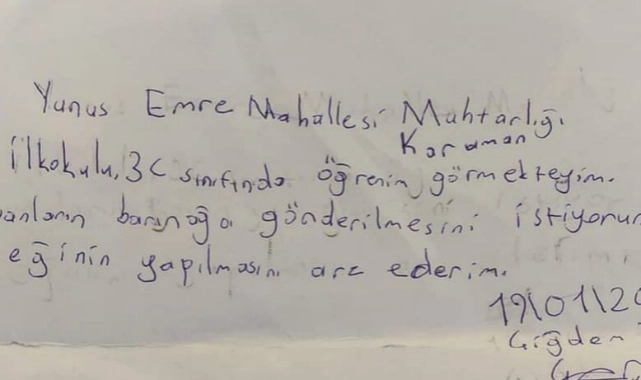 Yunus Emre Mahallesi Muhtarlığı
Karaman
İlkokulu, 3C sınıfında öğrenin görmekteyim.
anların barınağa gönderilmesini istiyorum
eğinin yapılmasını arz ederim.
19\01\20
Çiğdem